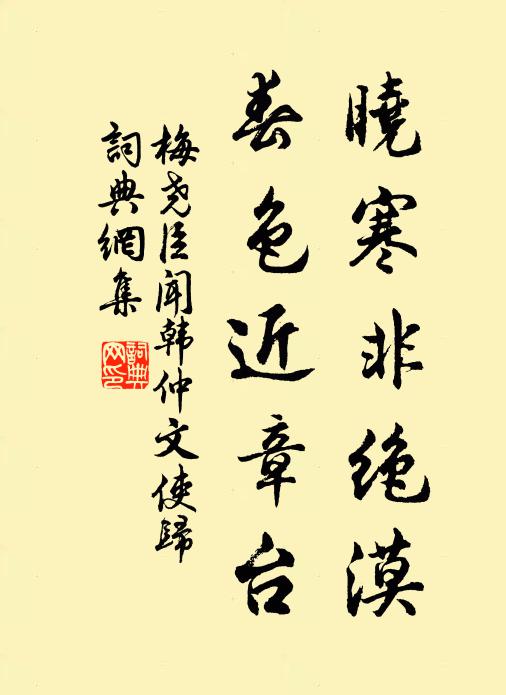 曉寒非绝漠
春色近章台
梅尧臣闻韩仲文使歸
詞典網集
詞典网印